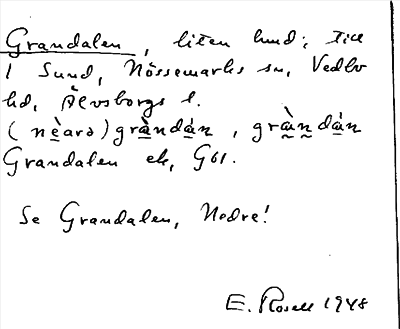 Grandalen, liten lund; till
1 Sund, Nössemarks sn, Vedbo
hd, Älvsborgs l.
(nèarə)gràndán, gràndán
Grandalen ek, G61.
Se Grandalen, Nedre!
E. Rosell 1948